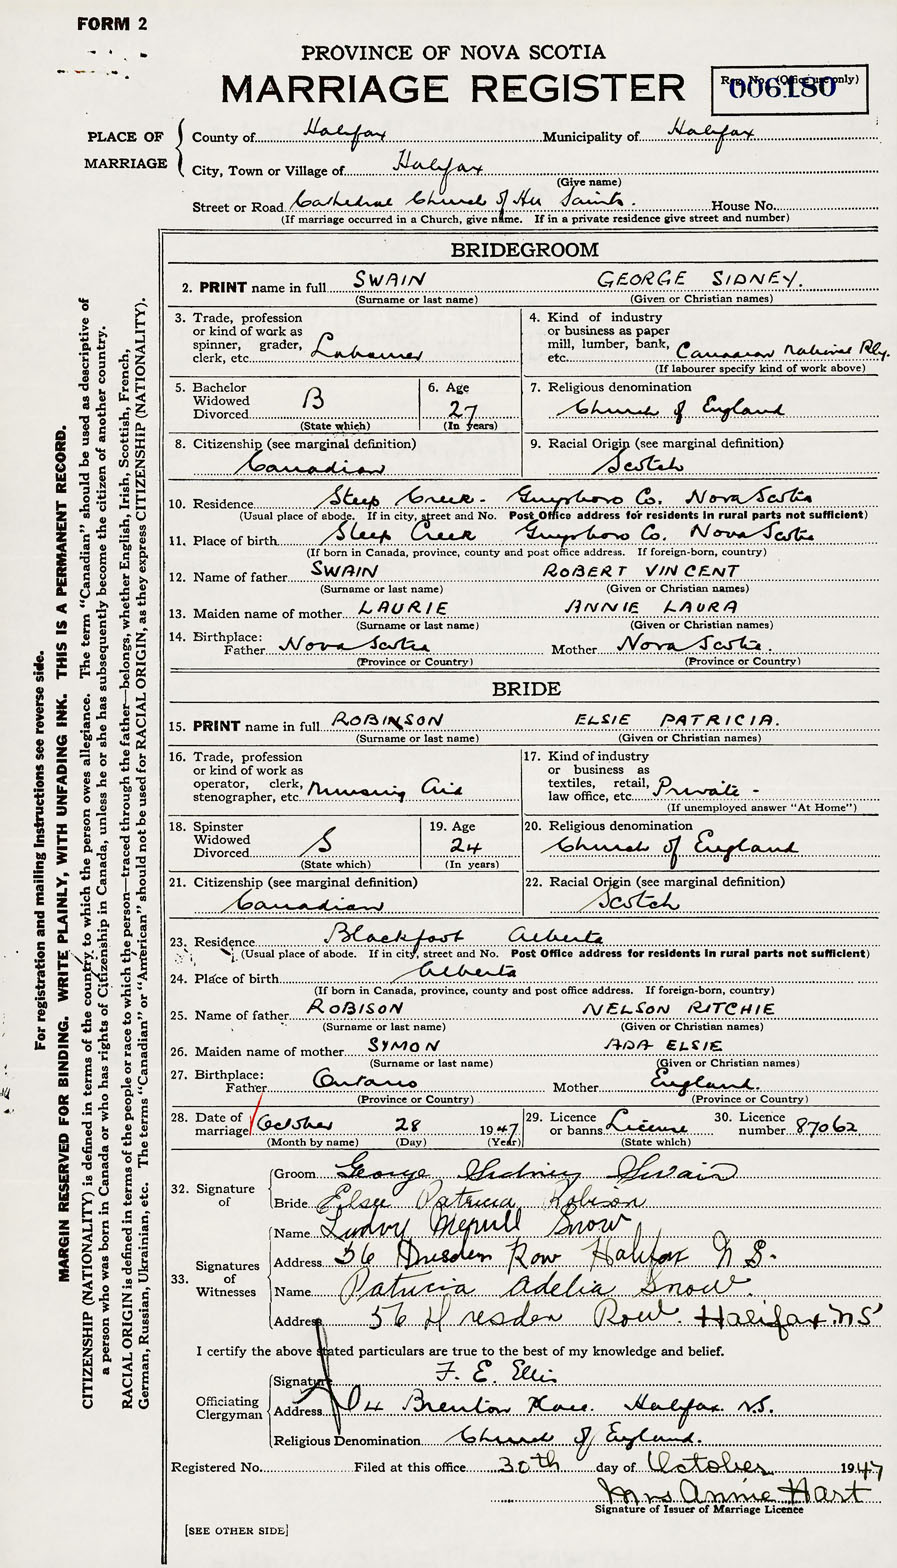 FORM 2
PROVINCE OF NOVA SCOTIA
MARRIAGE REGISTER
Reg. No. (Office use only)
006180
PLACE OF MARRIAGE
County of Halifax Municipality of Halifax
City, Town or Village of Halifax
(Give name)
Street or Road Cathedral Church of All Saints. House No.
(If marriage occurred in a Church, give name. If in a private residence give street and number)
BRIDEGROOM
2. PRINT name in full SWAIN GEORGE SIDNEY.
(Surname or last name) (Given or Christian names)
3. Trade, profession or kind of work as spinner, grader, clerk, etc. Labourer
4. Kind of industry or business as paper mill, lumber, bank, etc. Canadian National Rly.
(If labourer specify kind of work above)
5. Bachelor Widowed Divorced B
(State which)
6. Age 27
(In years)
7. Religious denomination
Church of England
8. Citizenship (see marginal definition)
Canadian
9. Racial Origin (see marginal definition)
Scotch
10. Residence Steep Creek - Guysboro Co. Nova Scotia
(Usual place of abode. If in city, street and No. Post Office address for residents in rural parts not sufficient)
11. Place of birth Steep Creek Guysboro Co. Nova Scotia
(If born in Canada, province, county and post office address. If foreign-born, country)
12. Name of father SWAIN ROBERT VINCENT
(Surname or last name) (Given or Christian names)
13. Maiden name of mother LAURIE ANNIE LAURA
(Surname or last name) (Given or Christian names)
14. Birthplace:
Father Nova Scotia Mother Nova Scotia.
(Province or Country) (Province or Country)
BRIDE
15. PRINT name in full ROBINSON ELSIE PATRICIA.
(Surname or last name) (Given or Christian names)
16. Trade, profession or kind of work as operator, clerk, stenographer, etc. Nursing Aid
17. Kind of industry or business as textiles, retail, law office, etc. Private -
(If unemployed answer "At Home")
18. Spinster Widowed Divorced S
(State which)
19. Age 24
(In years)
20. Religious denomination
Church of England
21. Citizenship (see marginal definition)
Canadian
22. Racial Origin (see marginal definition)
Scotch
23. Residence Blackfoot Alberta
(Usual place of abode. If in city, street and No. Post Office address for residents in rural parts not sufficient)
24. Place of birth Alberta
(If born in Canada, province, county and post office address. If foreign-born, country)
25. Name of father ROBISON NELSON RITCHIE
(Surname or last name) (Given or Christian names)
26. Maiden name of mother SYMON ADA ELSIE
(Surname or last name) (Given or Christian names)
27. Birthplace:
Father Ontario Mother England.
(Province or Country) (Province or Country)
28. Date of marriage October 28 1947
(Month by name) (Day) (Year)
29. Licence or banns License
(State which)
30. Licence number 87062
32. Signature of
Groom George Sidney Swain
Bride Elsie Patricia Robison
33. Signatures of Witnesses
Name Merrill Snow
Address 56 Dresden Row Halifax N S.
Name Patricia Adelia Snow.
Address 56 Dresden Row. Halifax. NS
I certify the above stated particulars are true to the best of my knowledge and belief.
Officiating Clergyman
Signature F. E. Ellis
Address 104 Brenton Place. Halifax. N.S.
Religious Denomination Church of England.
Registered No. Filed at this office 30th day of October 1947
Mrs Annie Hart
Signature of Issuer of Marriage Licence
[SEE OTHER SIDE]
For registration and mailing instructions see reverse side.
MARGIN RESERVED FOR BINDING. WRITE PLAINLY, WITH UNFADING INK. THIS IS A PERMANENT RECORD.
CITIZENSHIP (NATIONALITY) is defined in terms of the country to which the person owes allegiance. The term "Canadian" should be used as descriptive of
a person who was born in Canada or who has rights of Citizenship in Canada, unless he or she has subsequently become the citizen of another country.
RACIAL ORIGIN is defined in terms of the people or race to which the person—traced through the father—belongs, whether English, Irish, Scottish, French,
German, Russian, Ukrainian, etc. The terms "Canadian" or "American" should not be used for RACIAL ORIGIN, as they express CITIZENSHIP (NATIONALITY).